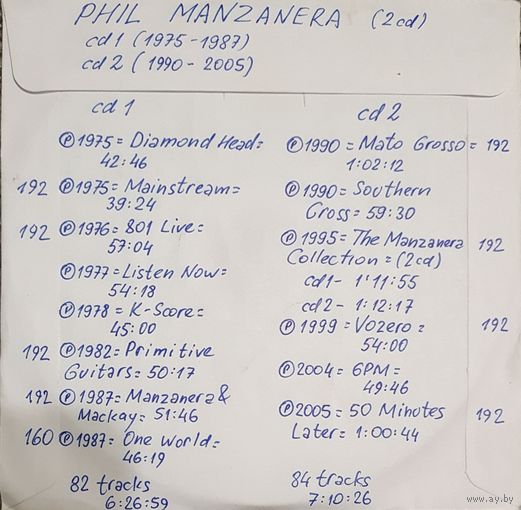 PHIL MANZANERA (2cd)
cd 1 (1975-1987)
cd 2 (1990-2005)
cd 1
℗1975= Diamond Head=
42:46
192 ℗1975= Mainstream=
39:24
192 ℗1976= 801 Live=
57:04
℗1977=Listen Now=
54:18
℗1978= K-Score=
45:00
192 ℗1982= Primitive
Guitars= 50:17
192 ℗1987= Manzanera &
Mackay= 51:46
160 ℗1987= One World=
46:19
82 tracks
6:26:59
cd 2
℗1990 = Mato Grosso = 192
1:02:12
℗1990= Southern
Cross= 59:30
℗1995= The Manzanera 192
Collection = (2cd)
cd1- 1'11:55
cd2- 1:12:17
℗1999 = Vozero = 192
54:00
℗2004= 6PM=
49:46
℗2005= 50 Minutes 192
Later= 1:00:44
84 tracks
7:10:26
www.ay.by